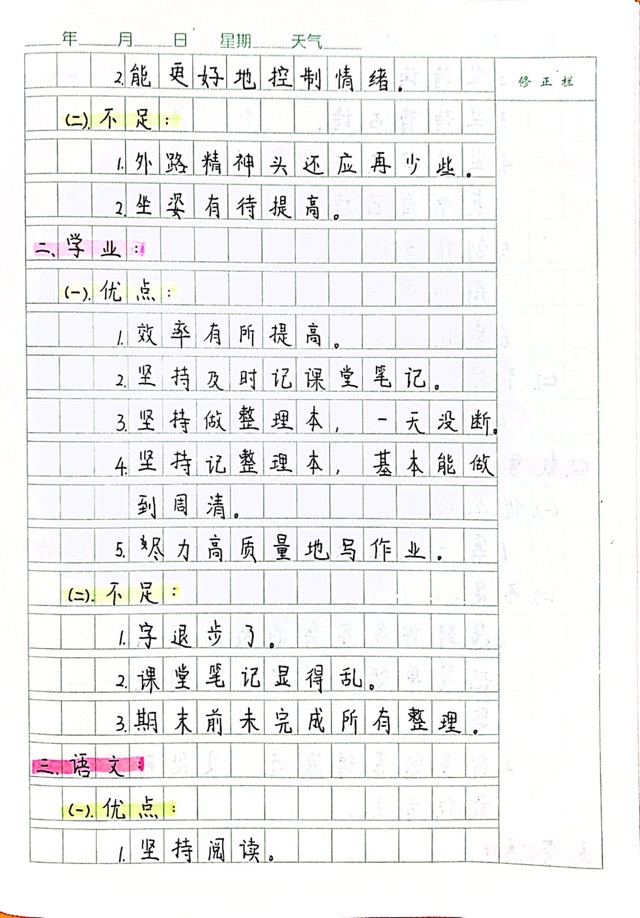 年 月 日 星期 天气
2.能更好地控制情绪.
修正栏
(二).不足:
1.外路精神头还应再少些。
2.坐姿有待提高。
二、学业:
(一).优点:
1.效率有所提高。
2.坚持及时记课堂笔记。
3.坚持做整理本,一天没断。
4.坚持记整理本,基本能做
到周清。
5.尽力高质量地写作业.
(二).不足:
1.字退步了。
2.课堂笔记显得乱。
3.期末前未完成所有整理.
三、语文:
(一).优点:
1.坚持阅读。